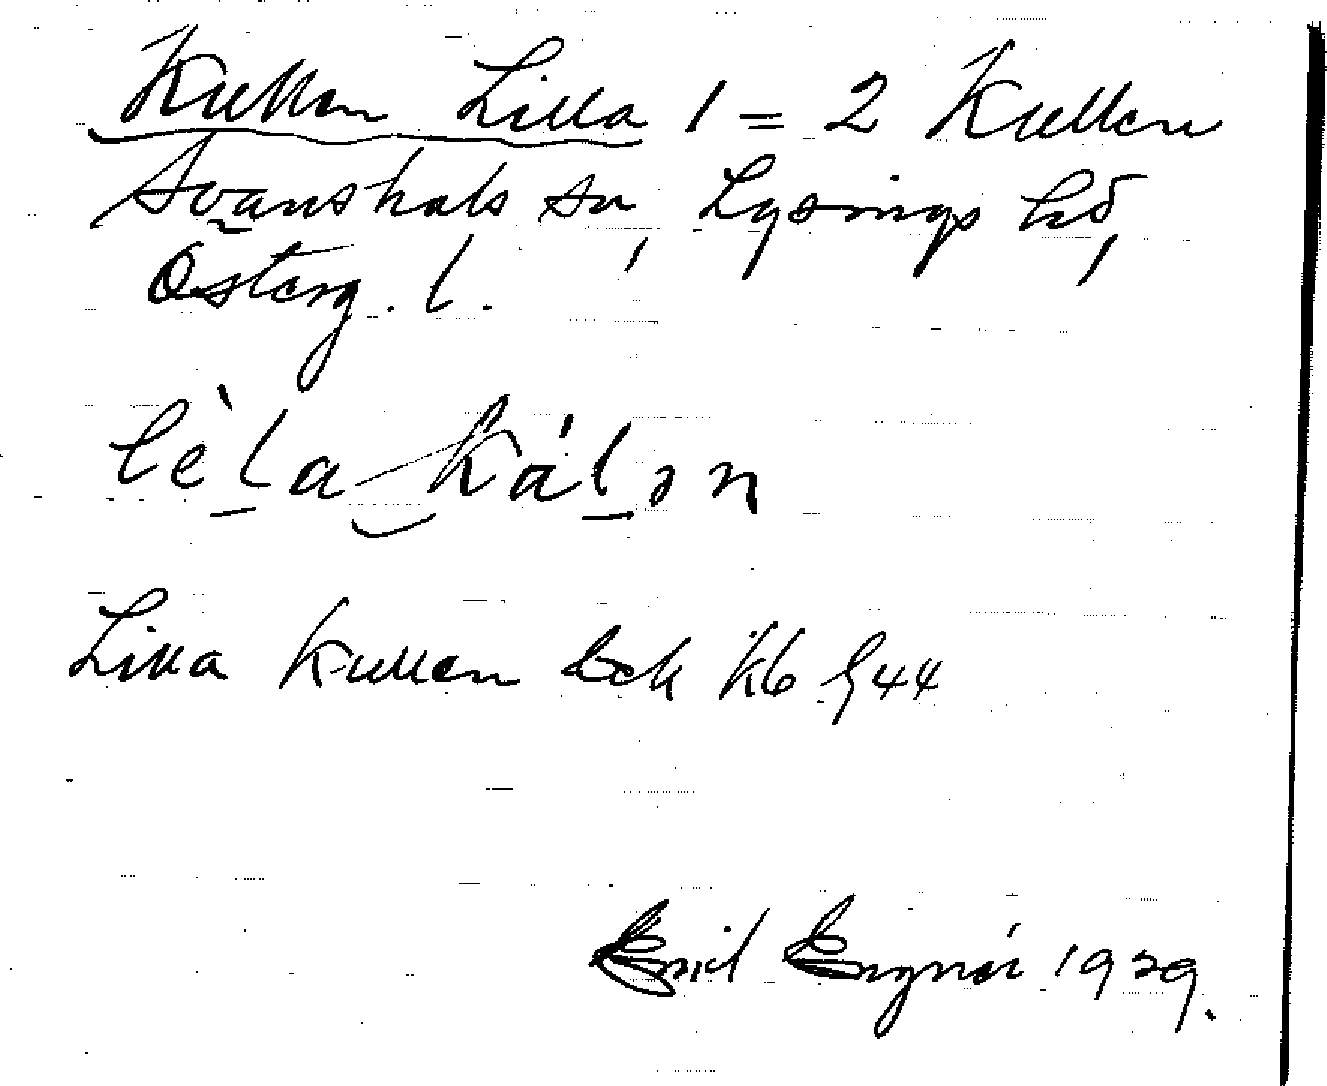 Kullen Lilla 1 = 2 Kullen
Svanshals sn, Lysings hd,
Österg. l.
lèla kálən
Lilla Kullen Eck Kb § 44
Emil Engnér 1929.